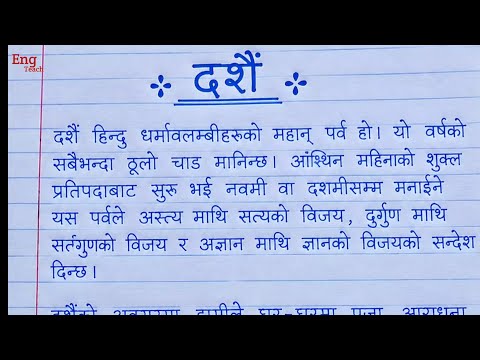 Eng
Teach
दशैं
दशैं हिन्दु धर्मावलम्बीहरूको महान् पर्व हो। यो वर्षको
सबैभन्दा ठूलो चाड मानिन्छ। आँश्थिन महिनाको शुक्ल
प्रतिपदाबाट सुरु भई नवमी वा दशमीसम्म मनाईने
यस पर्वले अस्त्य माथि सत्यको विजय, दुर्गुण माथि
सर्तगुणको विजय र अज्ञान माथि ज्ञानको विजयको सन्देश
दिन्छ।